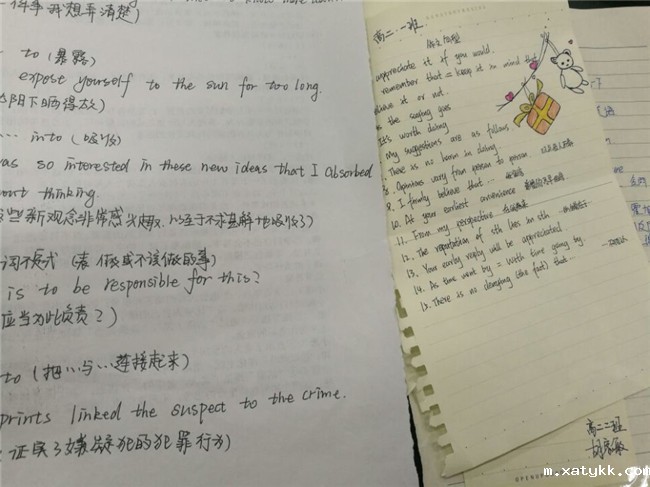 件事我想弄清楚)
to (暴露)
expose yourself to the sun for too long.
阳下晒得太久)
... into (吸收)
was so interested in these new ideas that I absorbed
out thinking.
些新观念非常感兴趣, 以至于不求甚解地吸收了)
词不定式 (表 做或不该做的事)
is to be responsible for this?
应当为此负责?)
to (把...与...连接起来)
prints linked the suspect to the crime.
证实了嫌疑犯的犯罪行为)
高二.一班
作文句型
appreciate it if you would.
remember that = keep it in mind that
believe it or not.
As the saying goes
It's worth doing
My suggestions are as follows
7. There is no harm in doing
8. Opinions vary from person to person
9. I firmly believe that ...
10. At your earliest convenience
11. From my perspective
12. The reputation of sth lies in sth
13. Your early reply will be appreciated.
14. As time went by = With time going by.
15. There is no denying (the fact) that ...
高二二班
m.xatykk.com